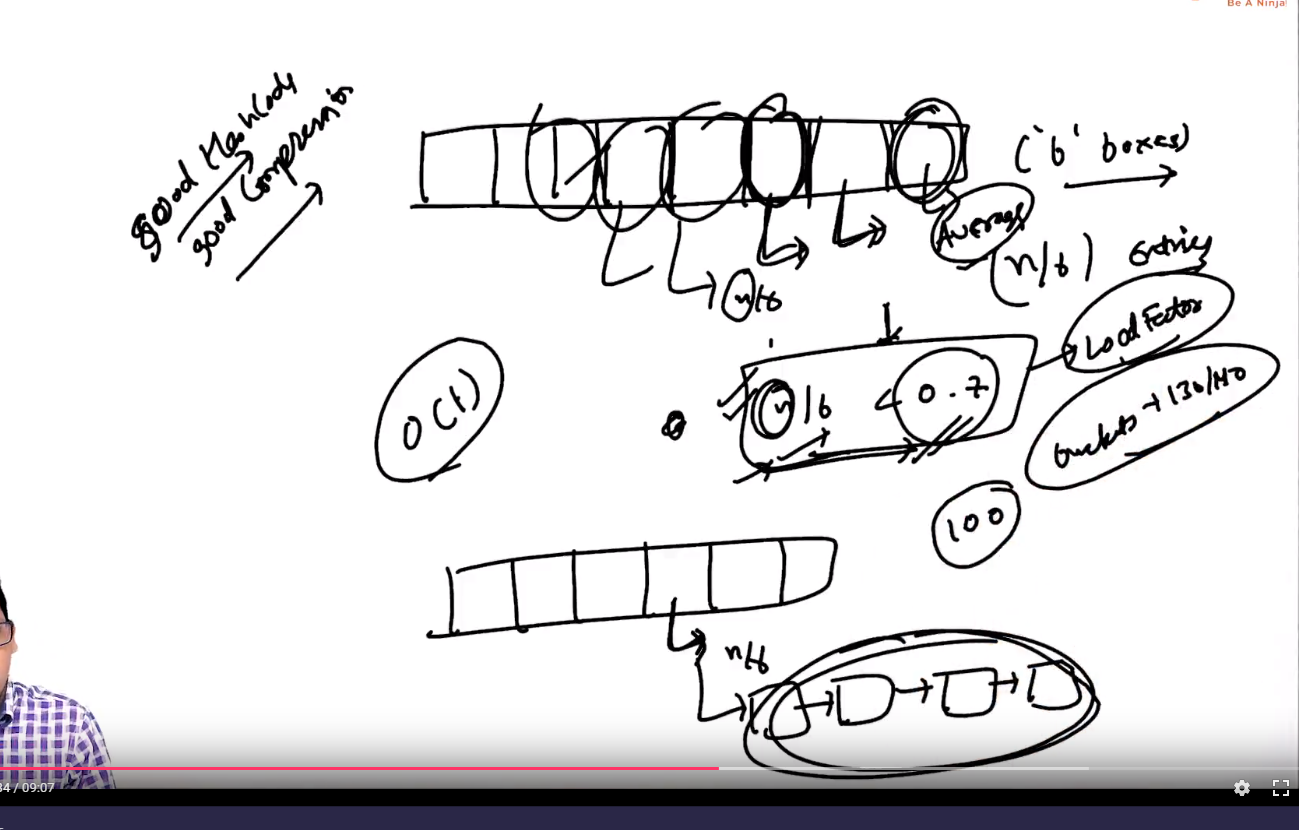 Be A Ninja!
good HashCode
good Compression
('b' boxes)
Average
(n/b) entries
n/b
Load Factor
O(1)
n/b < 0.7
buckets → 130/140
100
n/b
34 / 09:07